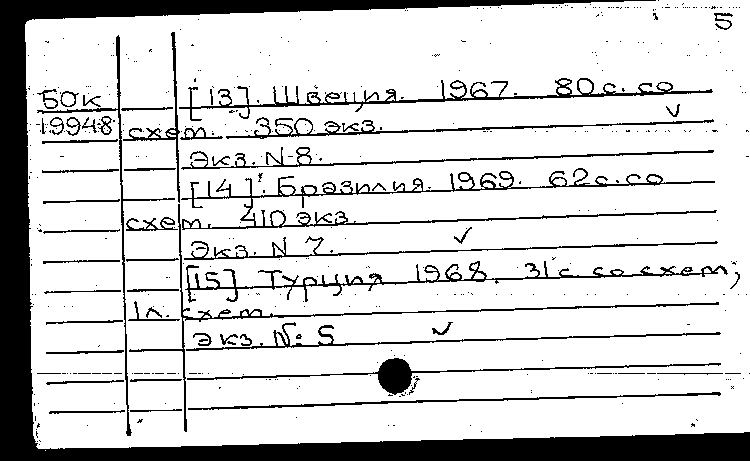 5
БОк [13]. Швеция. 1967. 80 с. со
19948 схем. 350 экз. ✓
Экз. N 8.
[14]. Бразилия. 1969. 62 с. со
схем. 410 экз.
Экз. N 7. ✓
[15] Турция 1968. 31 с. со схем;
1 л. схем.
Экз. №: 5 ✓